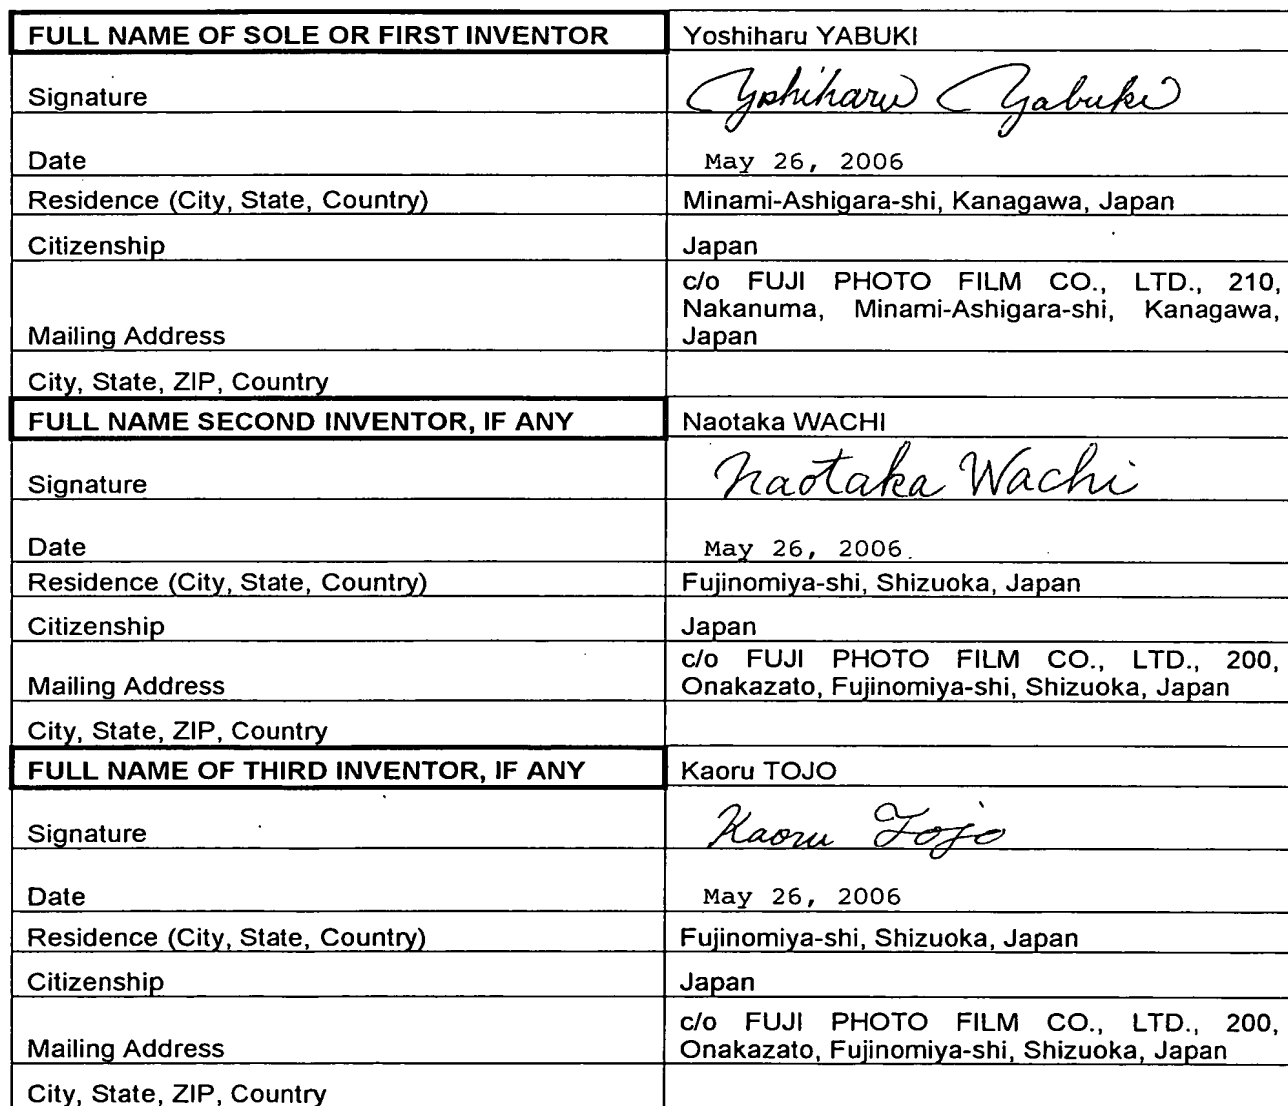 FULL NAME OF SOLE OR FIRST INVENTOR Yoshiharu YABUKI
Signature Yoshiharu Yabuki
Date May 26, 2006
Residence (City, State, Country) Minami-Ashigara-shi, Kanagawa, Japan
Citizenship Japan
c/o FUJI PHOTO FILM CO., LTD., 210,
Nakanuma, Minami-Ashigara-shi, Kanagawa,
Mailing Address Japan
City, State, ZIP, Country
FULL NAME SECOND INVENTOR, IF ANY Naotaka WACHI
Signature Naotaka Wachi
Date May 26, 2006
Residence (City, State, Country) Fujinomiya-shi, Shizuoka, Japan
Citizenship Japan
c/o FUJI PHOTO FILM CO., LTD., 200,
Mailing Address Onakazato, Fujinomiya-shi, Shizuoka, Japan
City, State, ZIP, Country
FULL NAME OF THIRD INVENTOR, IF ANY Kaoru TOJO
Signature Kaoru Tojo
Date May 26, 2006
Residence (City, State, Country) Fujinomiya-shi, Shizuoka, Japan
Citizenship Japan
c/o FUJI PHOTO FILM CO., LTD., 200,
Mailing Address Onakazato, Fujinomiya-shi, Shizuoka, Japan
City, State, ZIP, Country